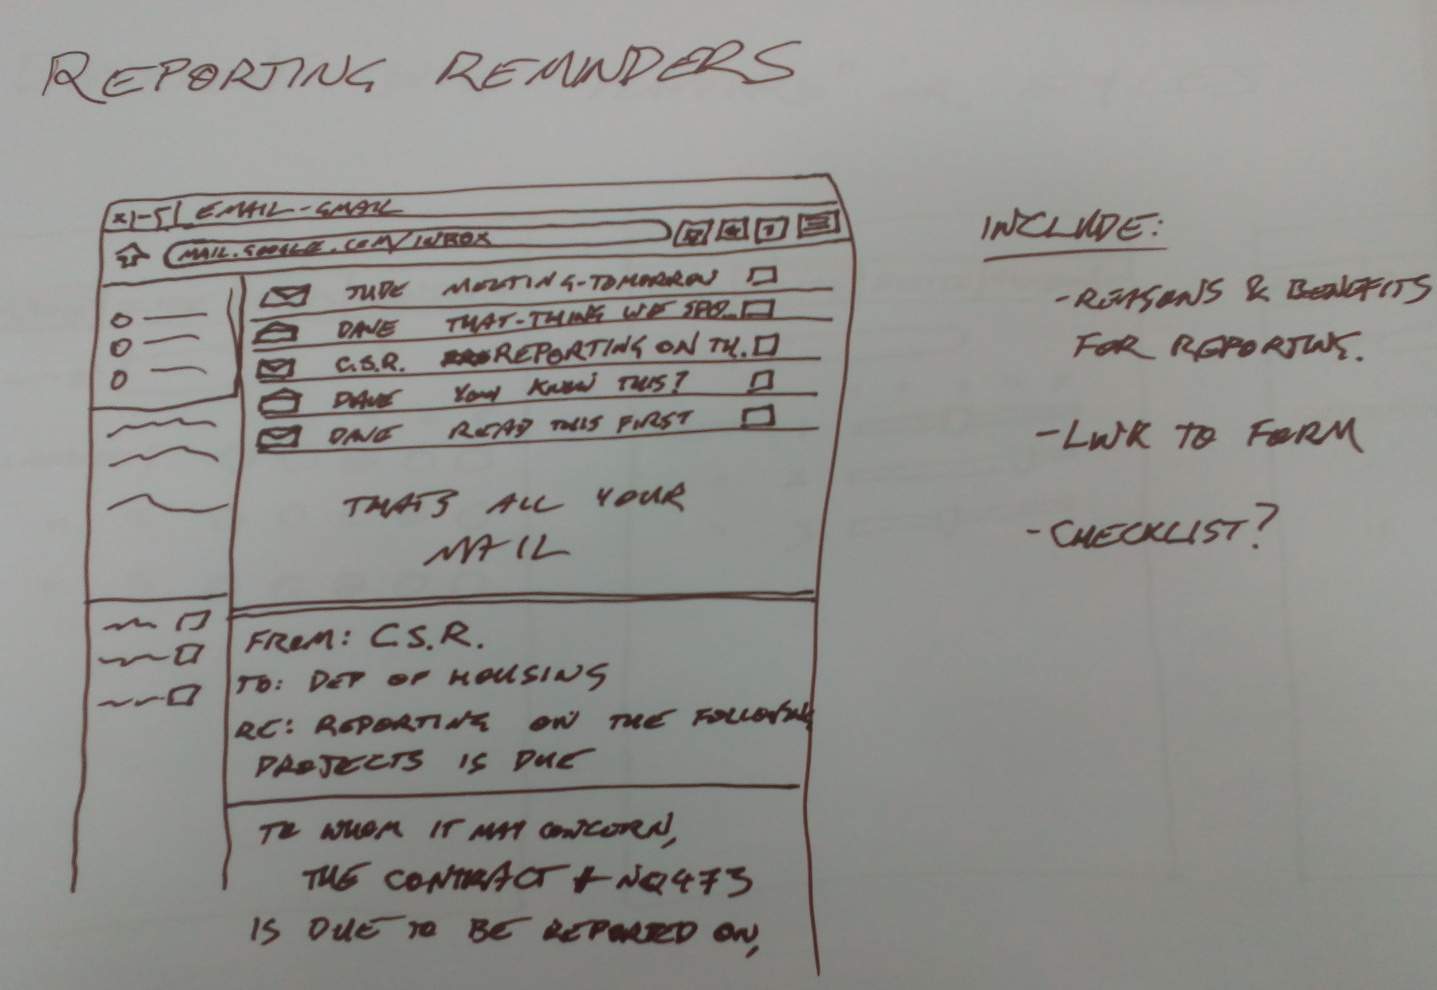 REPORTING REMINDERS
EMAIL-GMAIL
MAIL.GOOGLE.COM/INBOX
JUDE MEETING-TOMORROW
DAVE THAT-THING WE SPO..
C.S.R. REPORTING ON TH.
DAVE YOU KNOW THIS?
DAVE READ THIS FIRST
THATS ALL YOUR
MAIL
FROM: C.S.R.
TO: DEP OF HOUSING
RE: REPORTING ON THE FOLLOWING
PROJECTS IS DUE
TO WHOM IT MAY CONCERN,
THE CONTRACT # NQ473
IS DUE TO BE REPORTED ON,
INCLUDE:
-REASONS & BENEFITS
FOR REPORTING.
-LINK TO FORM
-CHECKLIST?